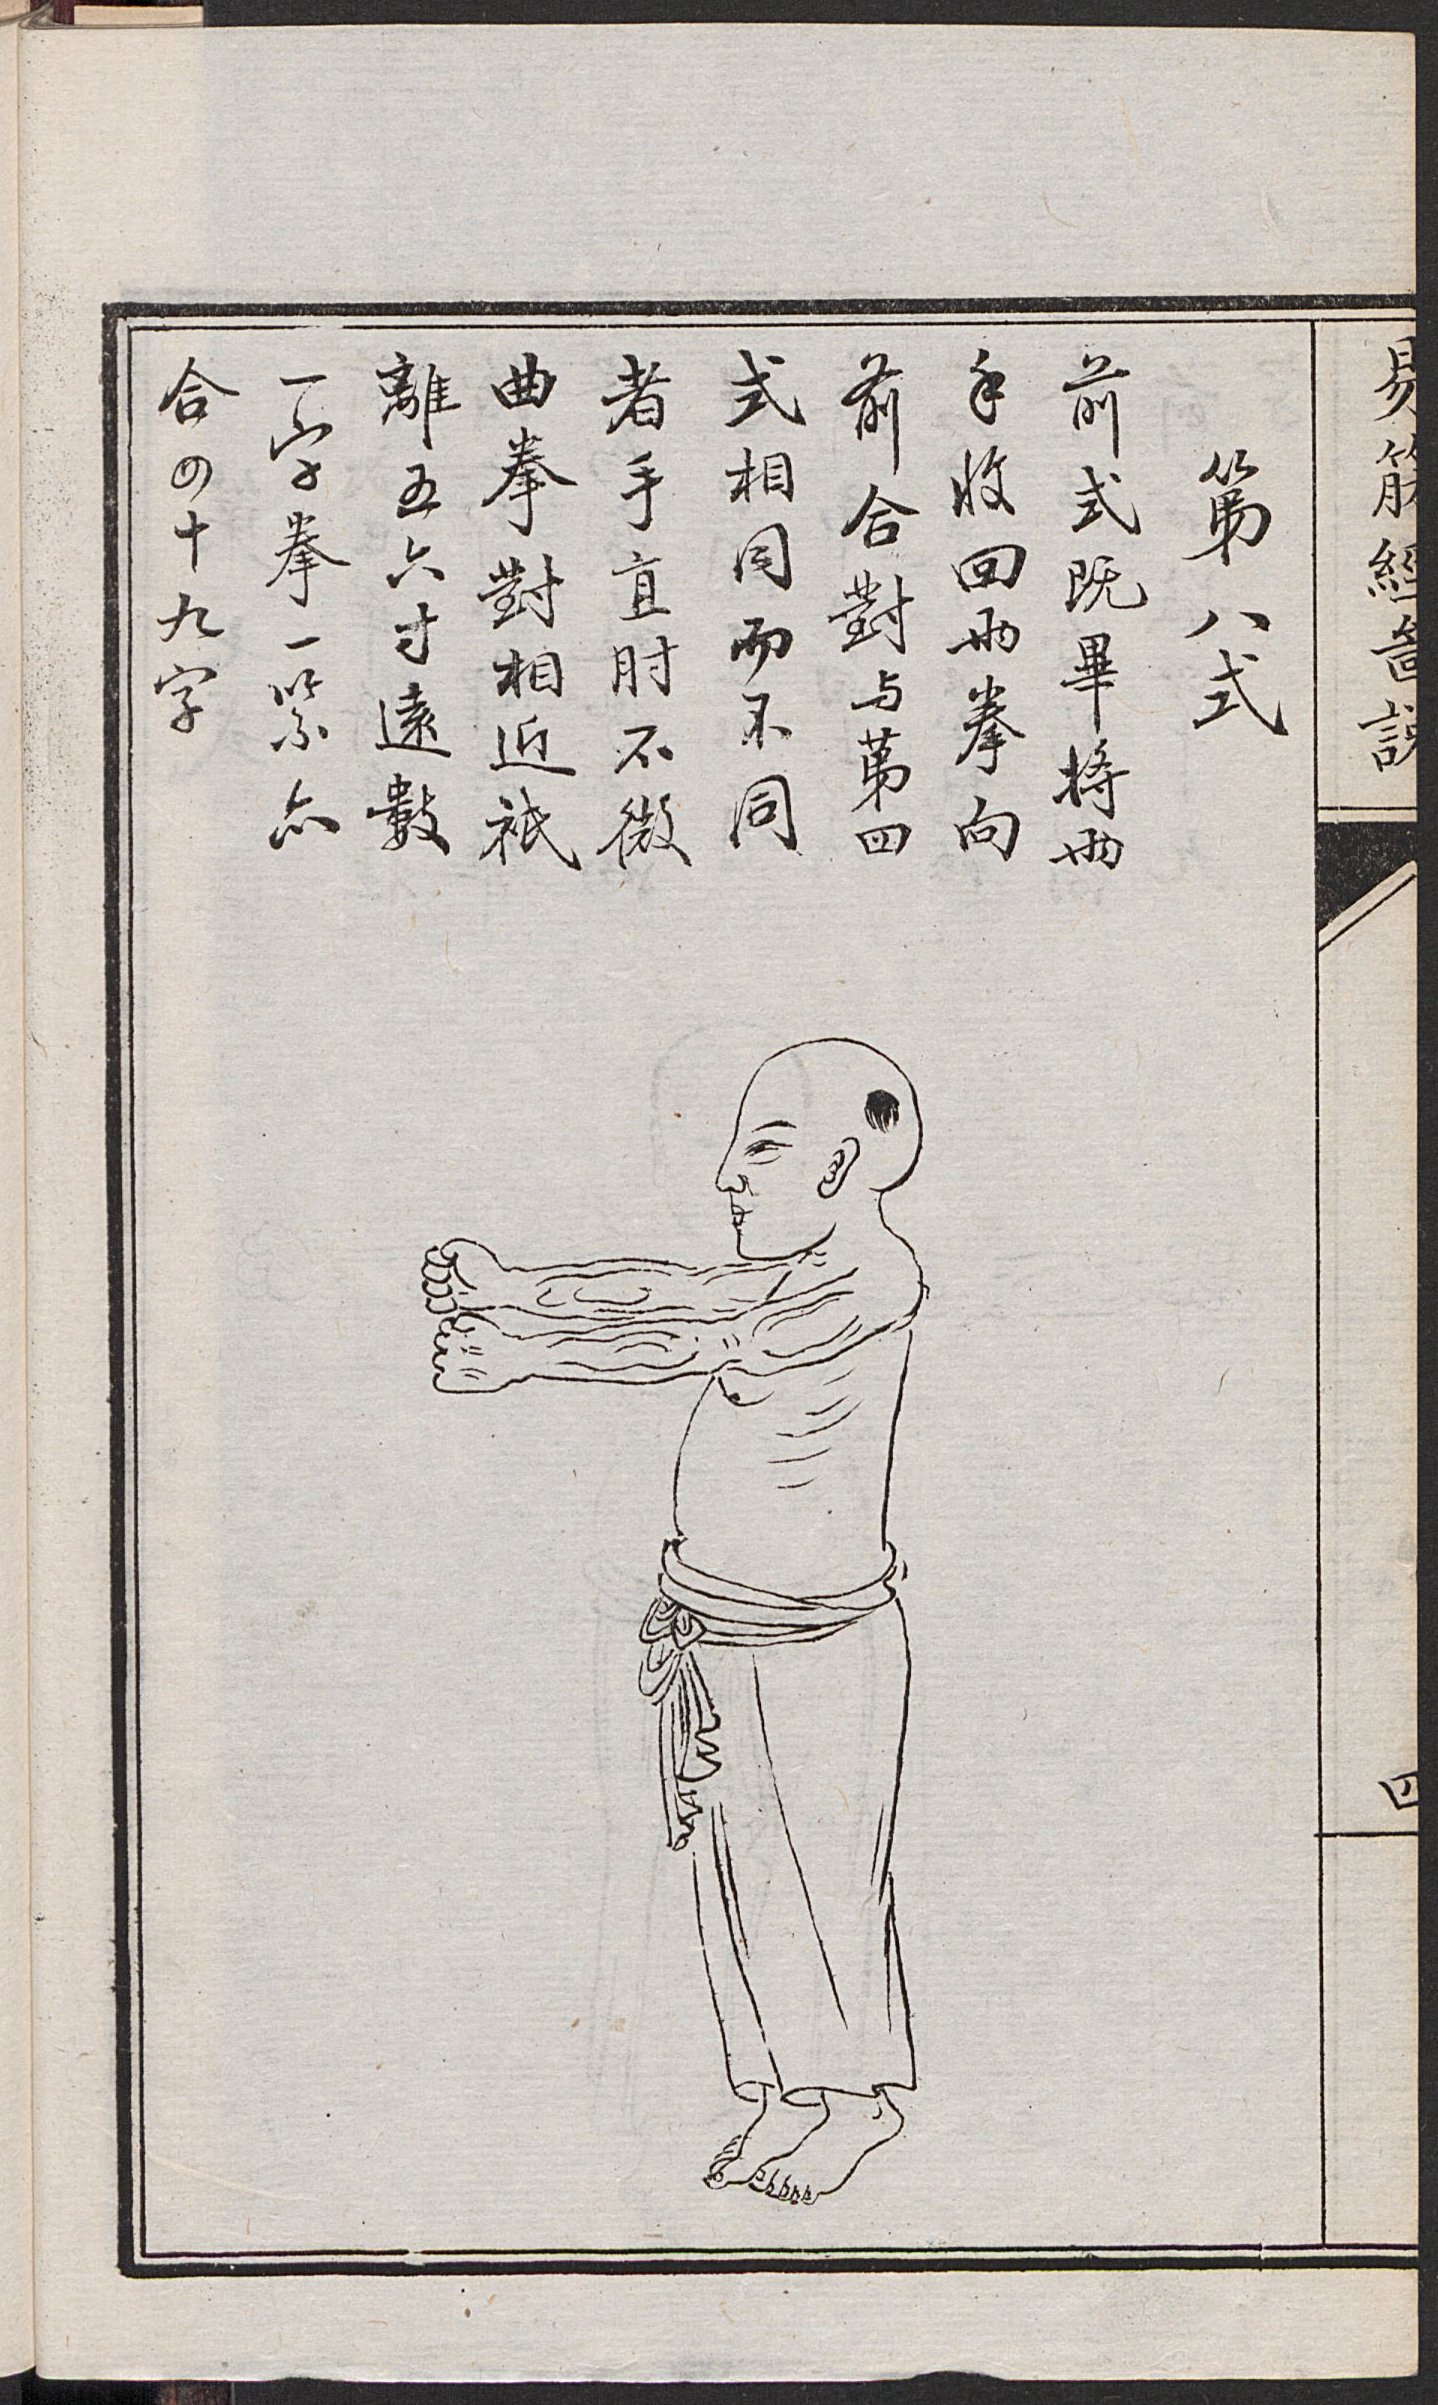 易筋經啚說
四
第八式
前式既畢將兩
手收回兩拳向
前合對与苐四
式相同而不同
者手直肘不微
曲拳對相近祇
離五六寸遠數
一字拳一緊亦
合四十九字